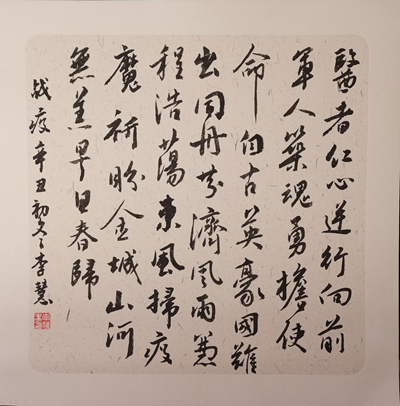 醫者仁心逆行向前
軍人築魂勇擔使
命自古英豪國難
出同舟共濟風雨兼
程浩蕩東風掃疫
魔祈盼金城山河
無恙早日春歸
战疫辛丑初冬李慧